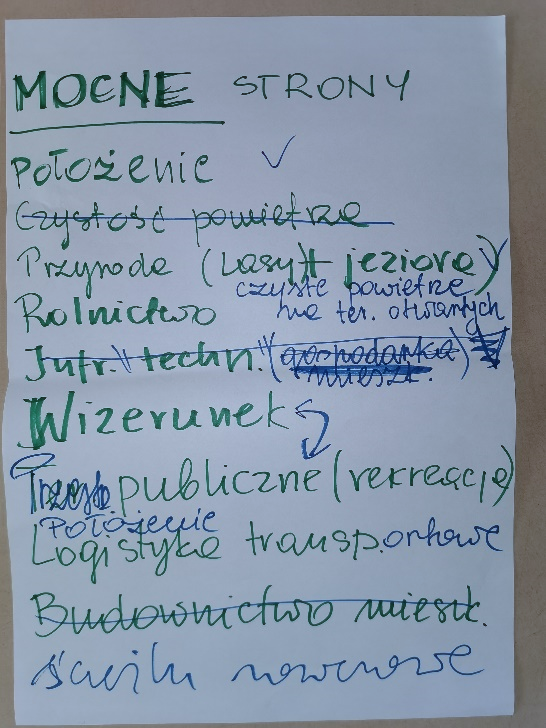 MOCNE STRONY
Położenie ✓
Czystość powietrza
Przyroda (Lasy + jeziora)
czyste powietrze
Rolnictwo na ter. otwartych
Infr. techn. (gospodarka
mieszk.)
Wizerunek
publiczne (rekreacja)
Położenie
Logistyka transportowe
Budownictwo mieszk.
ścieżki rowerowe